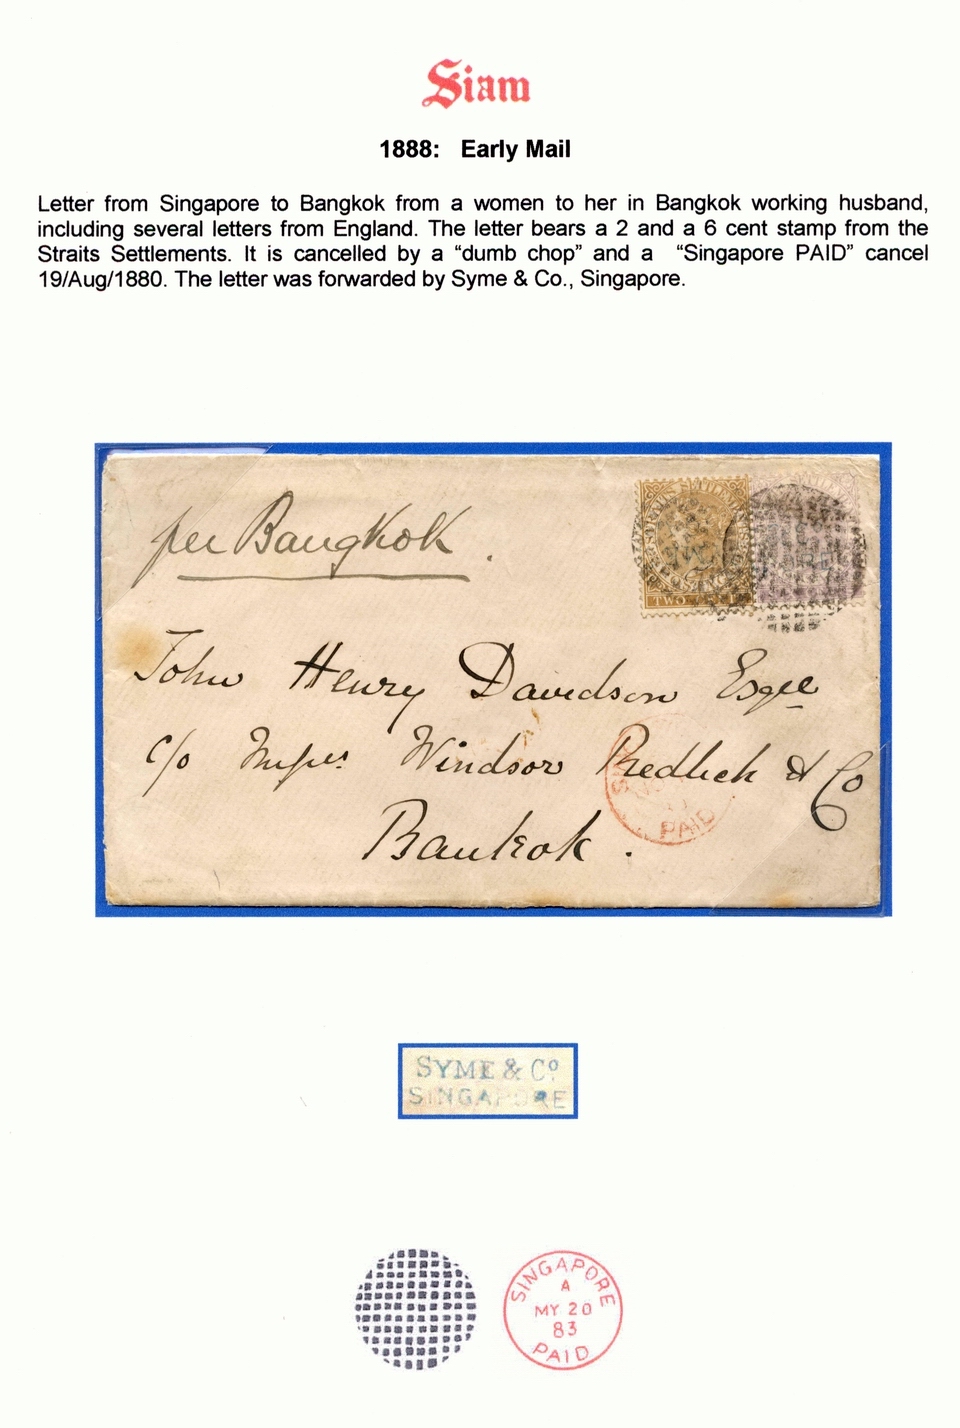 Siam
1888: Early Mail
Letter from Singapore to Bangkok from a women to her in Bangkok working husband,
including several letters from England. The letter bears a 2 and a 6 cent stamp from the
Straits Settlements. It is cancelled by a “dumb chop” and a “Singapore PAID” cancel
19/Aug/1880. The letter was forwarded by Syme & Co., Singapore.
per Bangkok.
TWO CENTS
John Henry Davidson Esqre
c/o Windsor Redlich & Co
PAID
Bankok.
SYME & Co.
SINGAPORE
SINGAPORE
A
MY 20
83
PAID